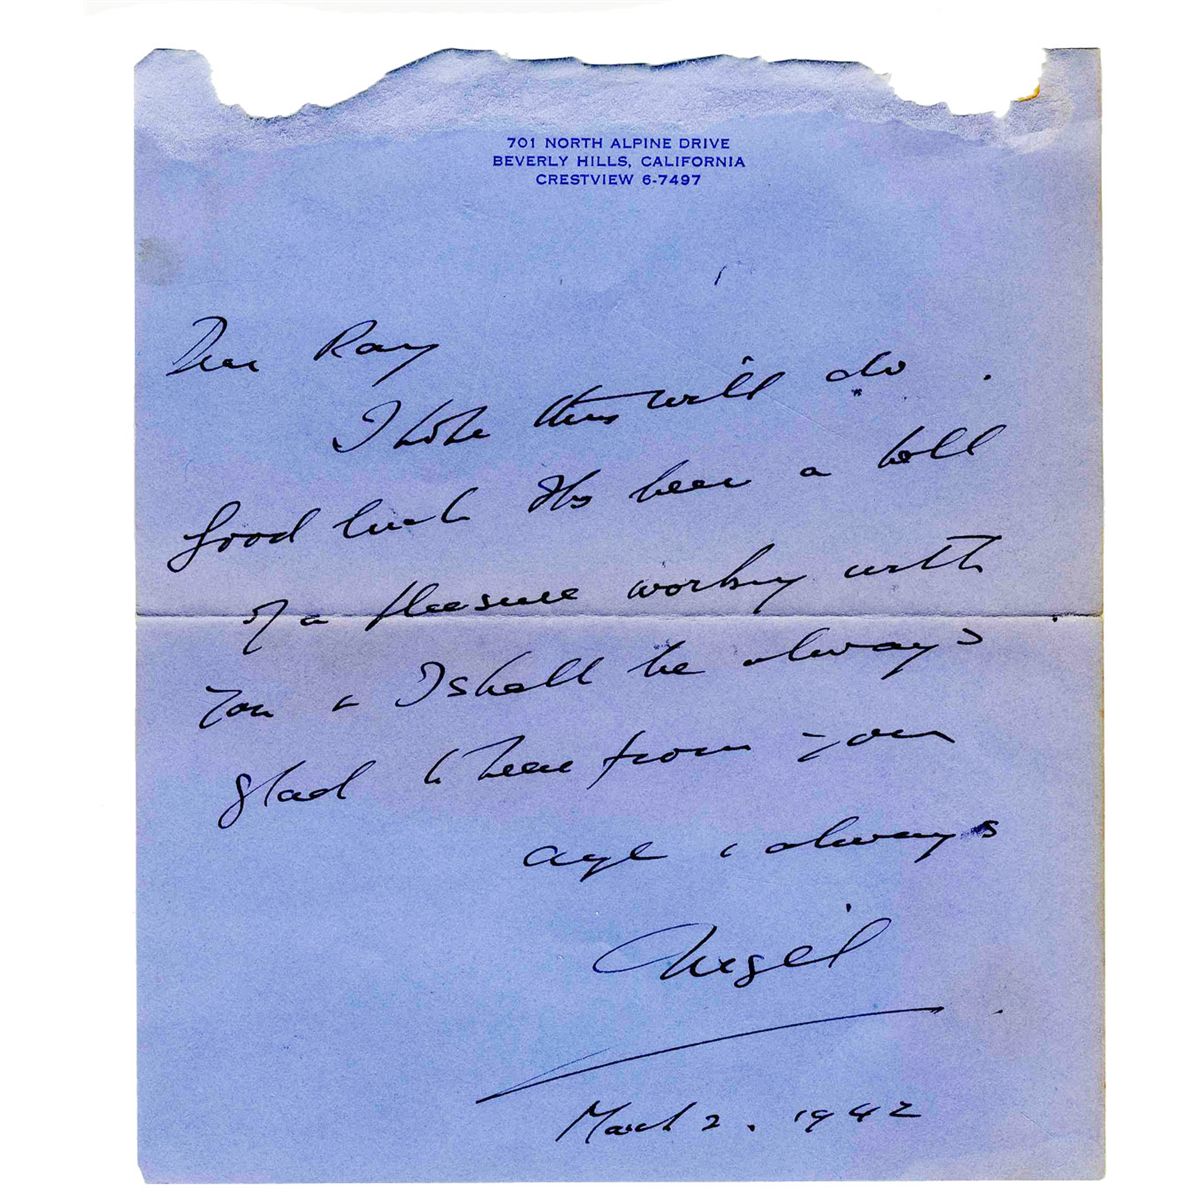 701 NORTH ALPINE DRIVE
BEVERLY HILLS, CALIFORNIA
CRESTVIEW 6-7497
Dear Ray
I hope this will do.
Good luck Its been a hell
of a pleasure working with
you & I shall be always
glad to hear from you
always
Nigel
March 2. 1942